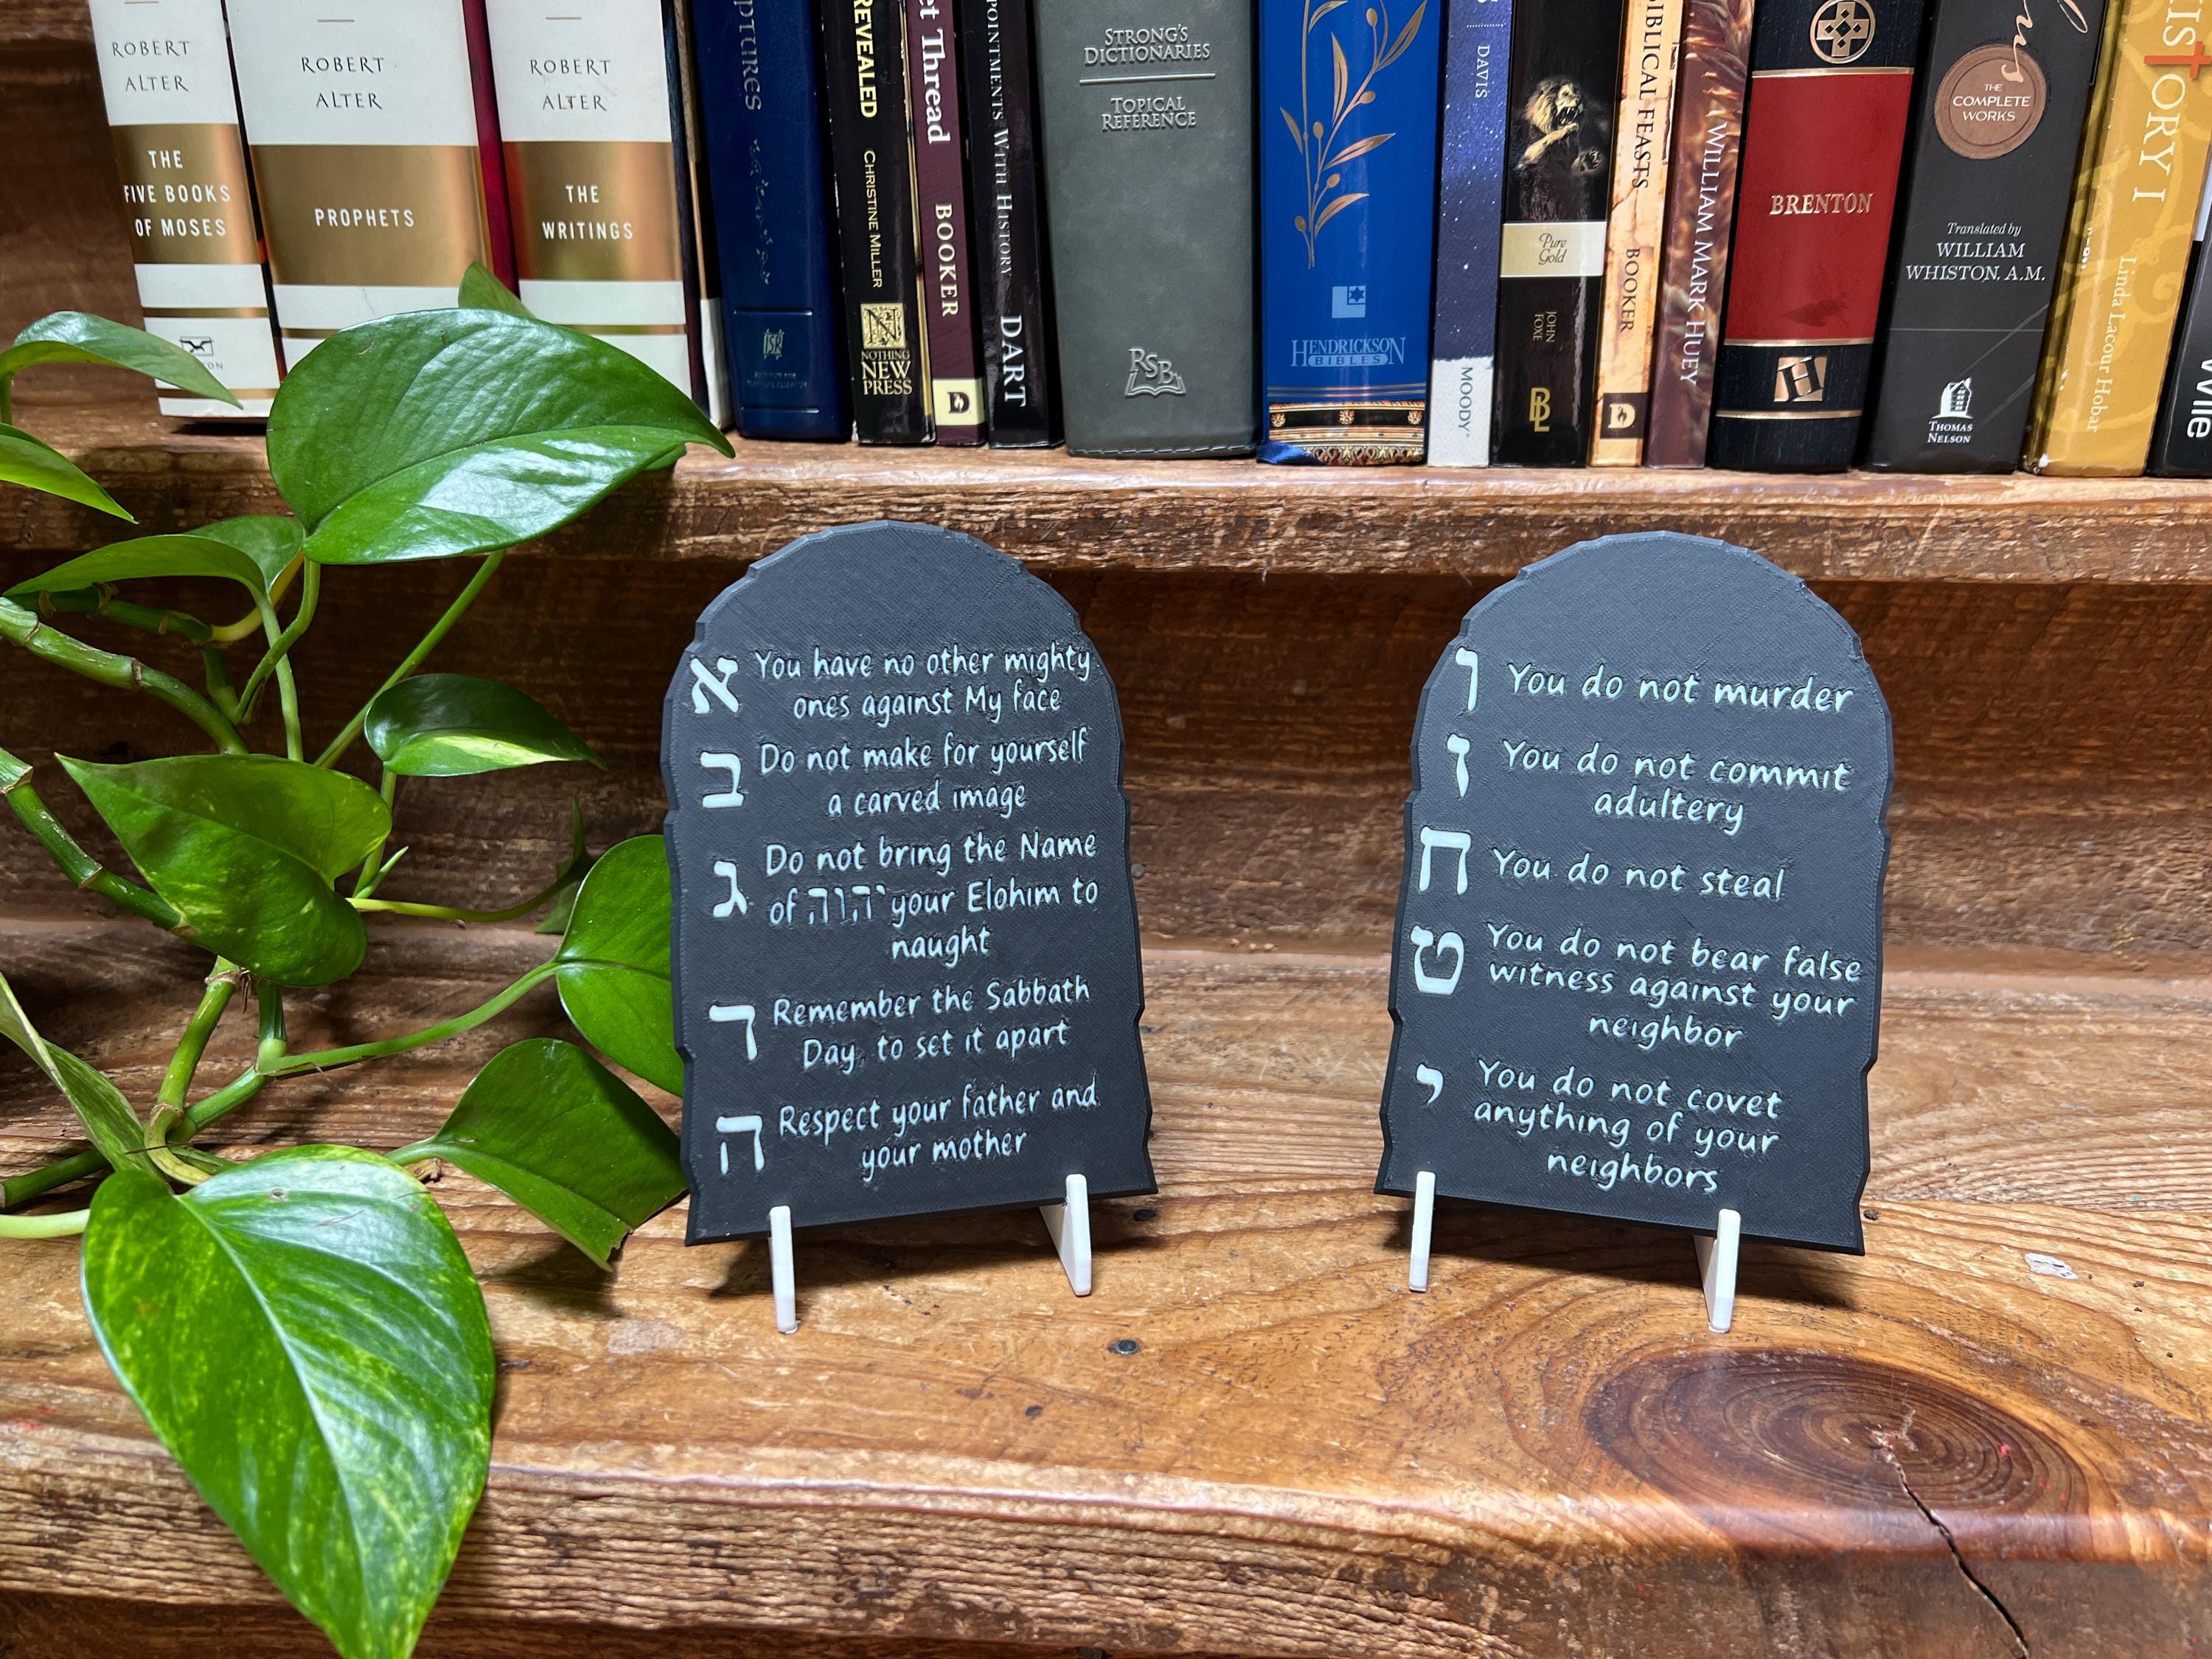 ROBERT
ALTER
THE
FIVE BOOKS
OF MOSES
ROBERT
ALTER
PROPHETS
ROBERT
ALTER
THE
WRITINGS
REVEALED
CHRISTINE MILLER
NOTHING
NEW
PRESS
Thread
BOOKER
WITH HISTORY
DART
STRONG'S
DICTIONARIES
TOPICAL
REFERENCE
RSB
HENDRICKSON
BIBLES
DAVIS
MOODY
Pure
Gold
JOHN
FOXE
BIBLICAL FEASTS
BOOKER
WILLIAM MARK HUEY
BRENTON
H
THE
COMPLETE
WORKS
Translated by
WILLIAM
WHISTON, A.M.
THOMAS
NELSON
Linda Lacour Hobar
א You have no other mighty
ones against My face
ב Do not make for yourself
a carved image
ג Do not bring the Name
of יהוה your Elohim to
naught
ד Remember the Sabbath
Day, to set it apart
ה Respect your father and
your mother
ו You do not murder
ז You do not commit
adultery
ח You do not steal
ט You do not bear false
witness against your
neighbor
י You do not covet
anything of your
neighbors